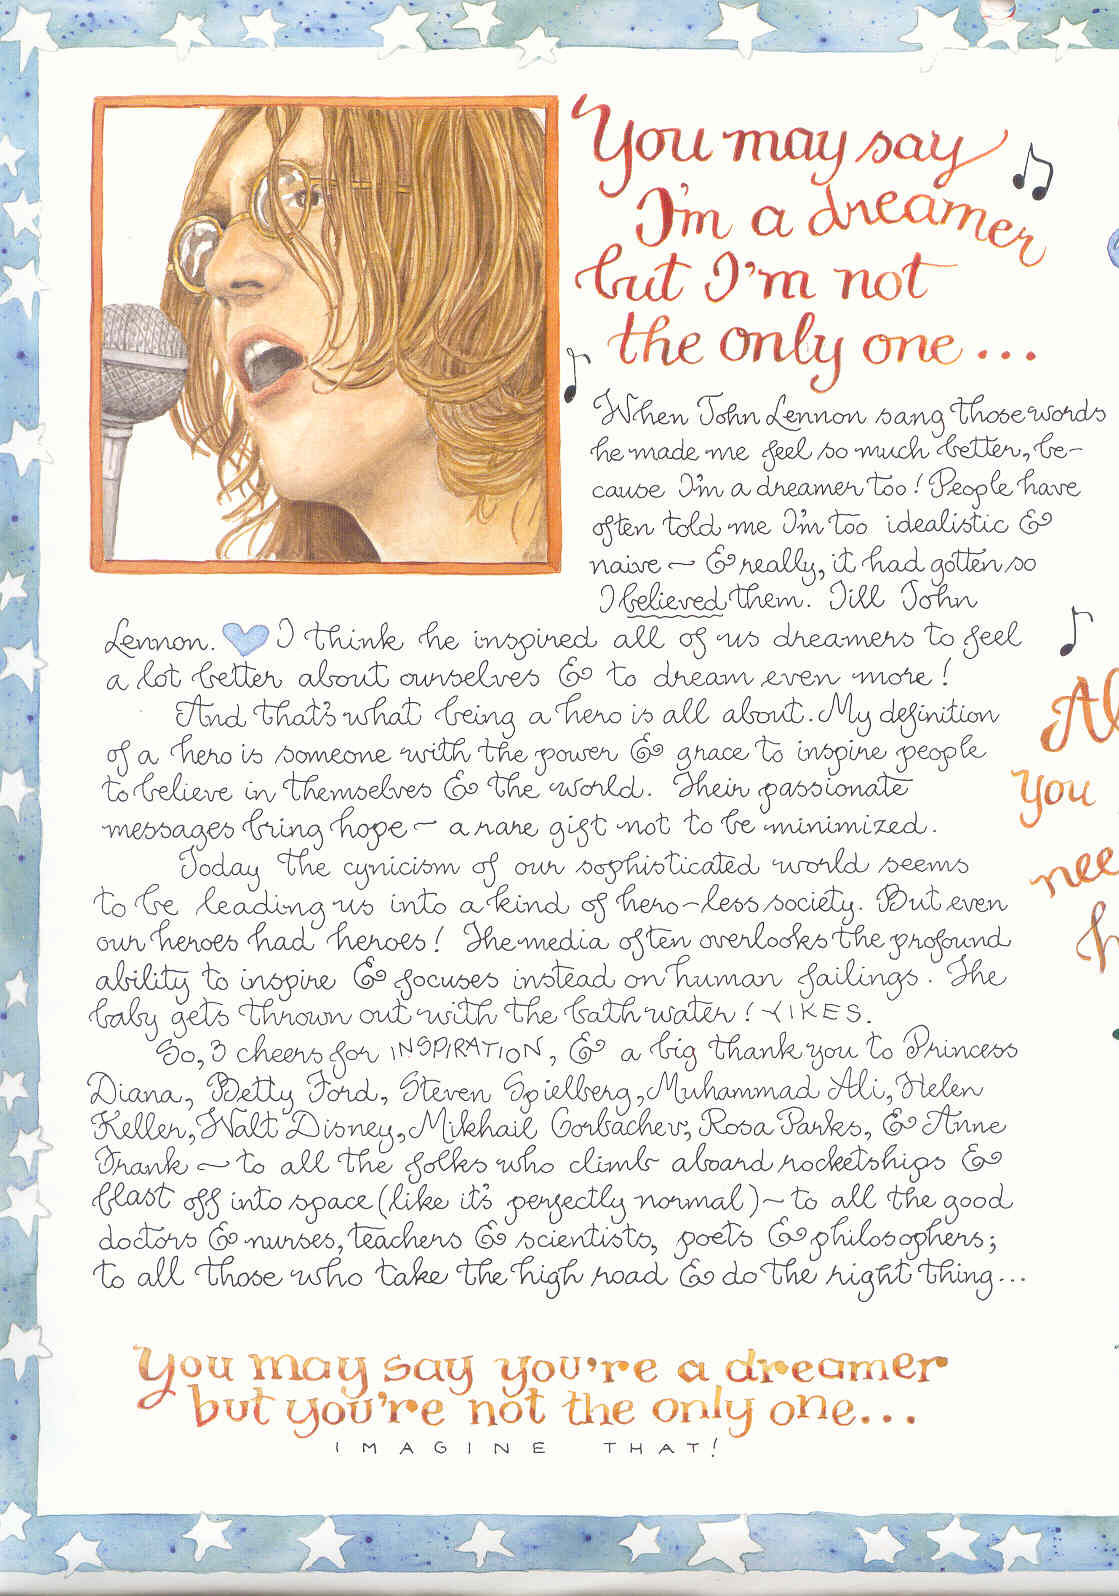 You may say
I'm a dreamer
but I'm not
the only one...
When John Lennon sang those words
he made me feel so much better, be-
cause I'm a dreamer too! People have
often told me I'm too idealistic &
naive ~ & really, it had gotten so
I believed them. Till John
Lennon. I think he inspired all of us dreamers to feel
a lot better about ourselves & to dream even more!
And that's what being a hero is all about. My definition
of a hero is someone with the power & grace to inspire people
to believe in themselves & the world. Their passionate
messages bring hope ~ a rare gift not to be minimized.
Today the cynicism of our sophisticated world seems
to be leading us into a kind of hero-less society. But even
our heroes had heroes! The media often overlooks the profound
ability to inspire & focuses instead on human failings. The
baby gets thrown out with the bath water! YIKES.
So, 3 cheers for INSPIRATION, & a big thank you to Princess
Diana, Betty Ford, Steven Spielberg, Muhammad Ali, Helen
Keller, Walt Disney, Mikhail Gorbachev, Rosa Parks, & Anne
Frank ~ to all the folks who climb aboard rocketships &
blast off into space (like it's perfectly normal) ~ to all the good
doctors & nurses, teachers & scientists, poets & philosophers;
to all those who take the high road & do the right thing...
You may say you're a dreamer
but you're not the only one...
IMAGINE THAT!
Al
you
nee
h